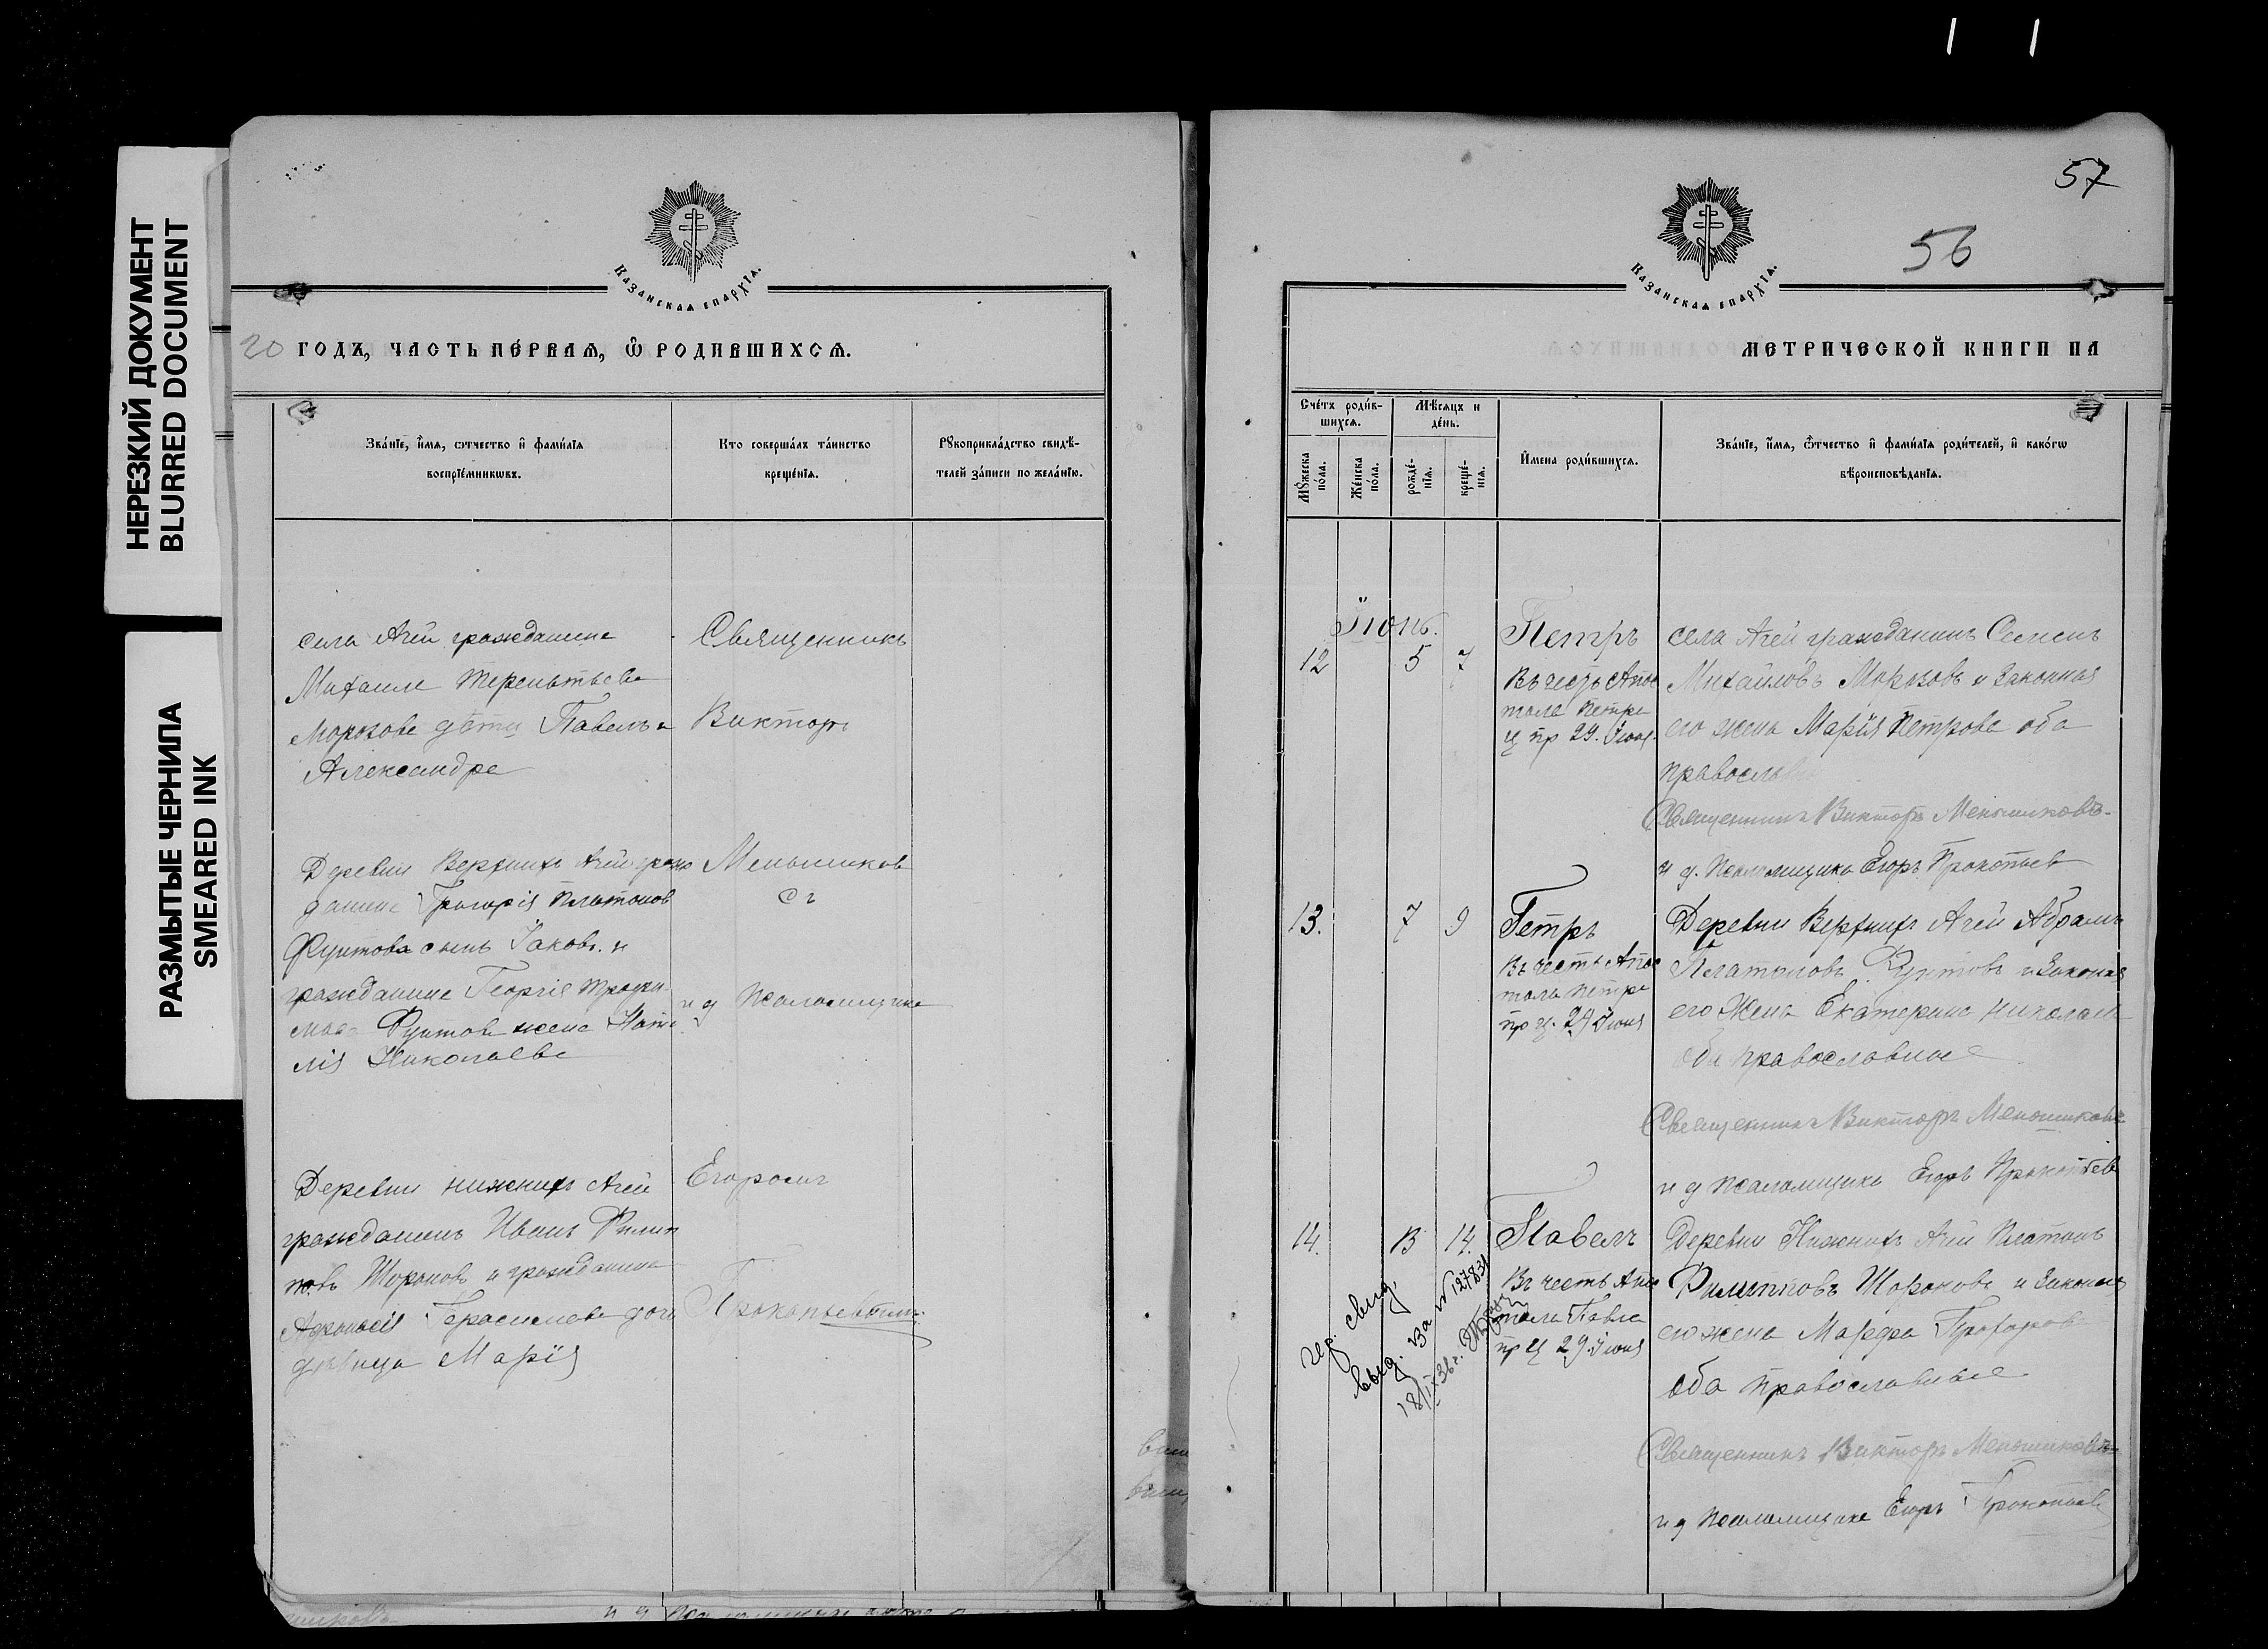 НЕРЕЗКИЙ ДОКУМЕНТ
BLURRED DOCUMENT
РАЗМЫТЫЕ ЧЕРНИЛА
SMEARED INK
Казанская епархїѧ.
20 годъ, часть пе́рваѧ, ѡ҆ родившихсѧ.
Зва́нїе, и҆́мѧ, ѻтчество и҆ фами́лїѧ
воспрїе́мникѡвъ.
Кто соверша́лъ та́инство
креще́нїѧ.
Рꙋкоприкла́дство свидѣ́-
телей за́писи по жела́нїю.
села Ачей гражданина
Михаила Терентьева
Морозова дѣти Павелъ и
Александра
Деревни Верхнихъ Ачей граж
данина Григорія Платонов
Фунтова сынъ Іаковъ и
гражданина Георгія Трофи
мов Фунтова жена Ната
лія Николаева
Деревни Нижнихъ Ачей
гражданинъ Иванъ Филип
повъ Шороновъ и гражданина
Афонасія Герасимова дочь
дѣвица Марія
Священникъ
Викторъ
Меньшиков
съ
и д Псаломщика
Егоромъ
Прокопьевымъ
57
56
Казанская епархїѧ.
метрической книги на
Сче́тъ роди́в-
шихсѧ.
Мꙋ́жеска по́ла.
Же́нска по́ла.
Мѣ́сѧцъ и
де́нь.
рожде́-нїѧ.
креще́-нїѧ.
И҆мена роди́вшихсѧ.
Зва́нїе, и҆́мѧ, ѻ҆́тчество и҆ фами́лїѧ роди́телей, и҆ како́гѡ
вѣроисповѣ́данїѧ.
Іюнь.
12 5 7
Петръ
Въ честь Апос
тола Петра
Ц пр 29. Іюня
села Ачей гражданинъ Семенъ
Михайловъ Морозовъ и законная
его жена Марія Петрова оба
православн
Священникъ Викторъ Меньшиковъ.
и д. Псаломщика Егоръ Прокопьев
13. 7 9
Петръ
Въ честь Апос
тола Петра
пр ц. 29 Іюня
Деревни Верхнихъ Ачей Абрамъ
Платоновъ Фунтовъ и законая
его жена Екатерина Николаев
оба православные
Священникъ Викторъ Меньшиковъ
и д Псаломщика Егоръ Прокопьев
14. 13 14.
Павелъ
Въ честь Апос
тола Павла
пр ц 29. Іюня
Деревни Нижнихъ Ачей Платонъ
Филипповъ Шороновъ и законая
его жена Марфа Прохоров
оба православные
Священникъ Викторъ Меньшиковъ
и д Псаломщика Егоръ Прокопьев
выд. За № 12783